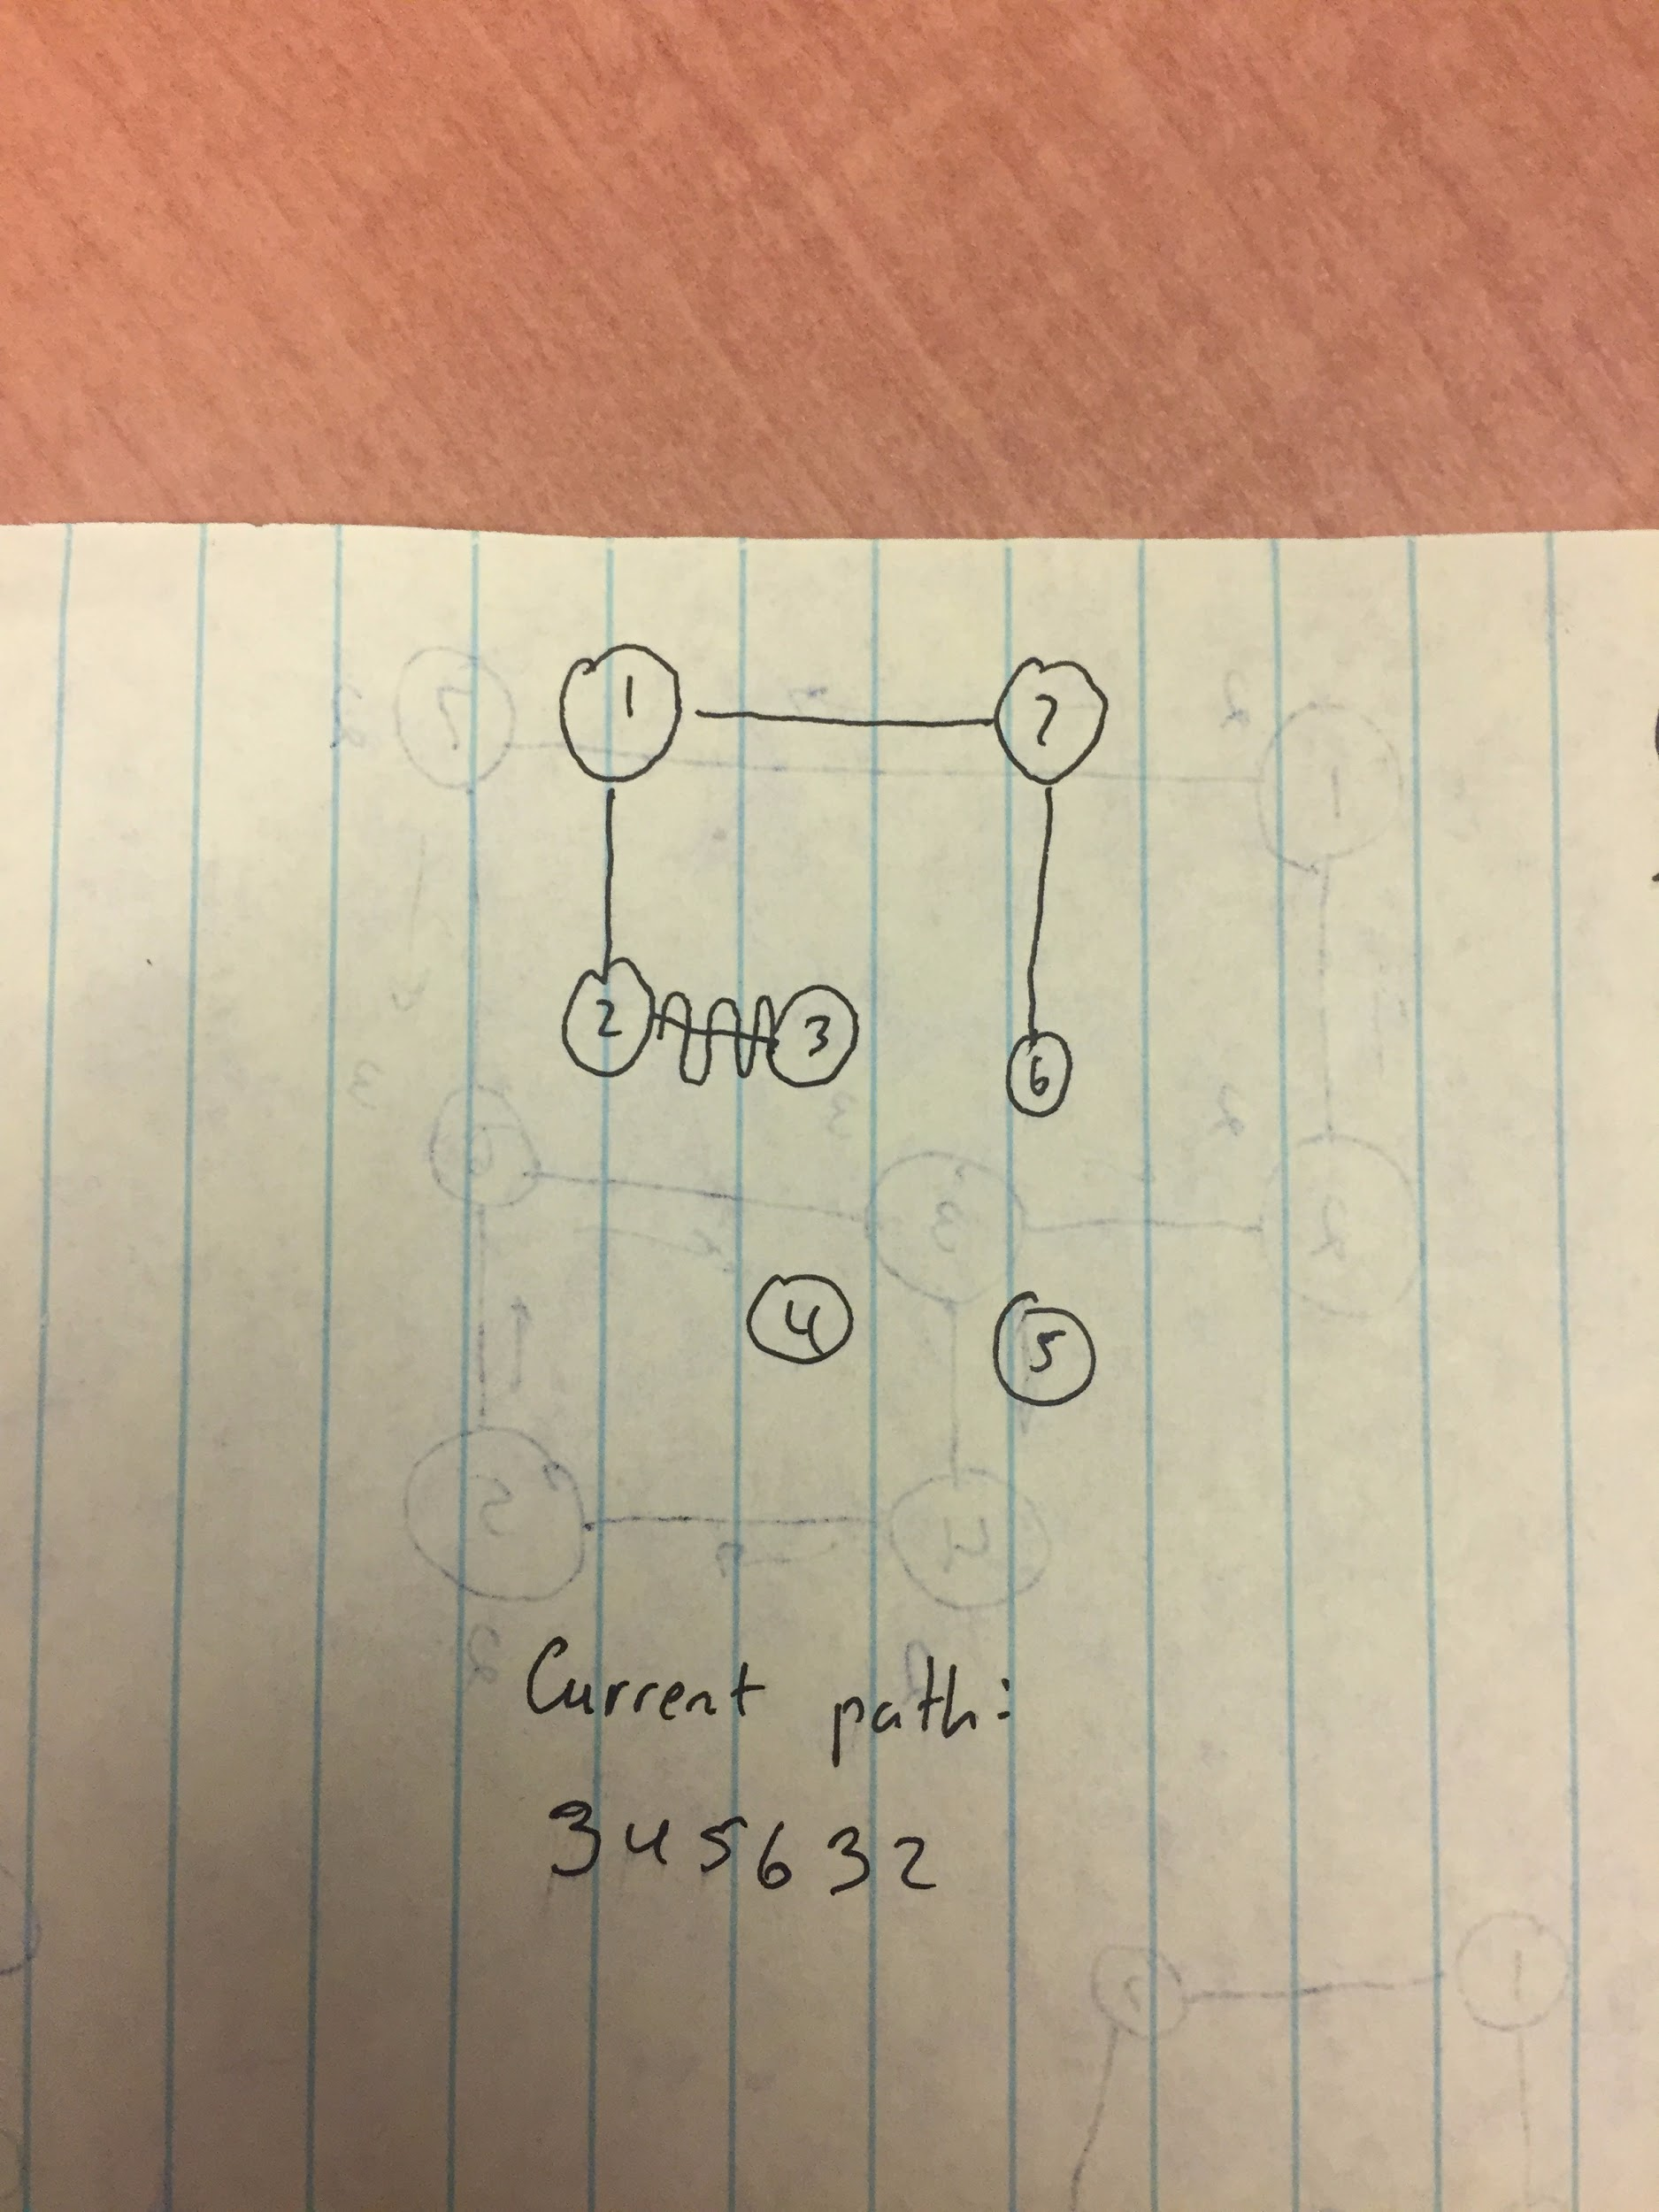 1 7
2 3
6
4 5
Current path:
3 4 5 6 3 2